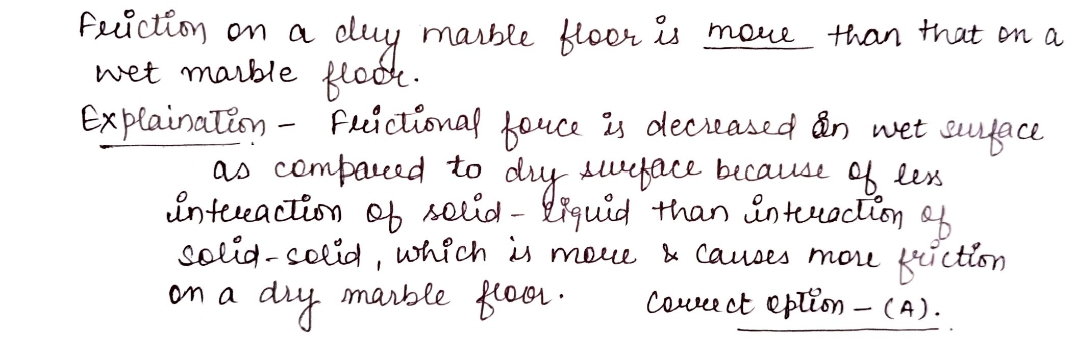 Friction on a dry marble floor is more than that on a
wet marble floor.
Explaination - Frictional force is decreased in wet surface
as compared to dry surface because of less
interaction of solid-liquid than interaction of
solid-solid, which is more & causes more friction
on a dry marble floor. Correct option - (A).